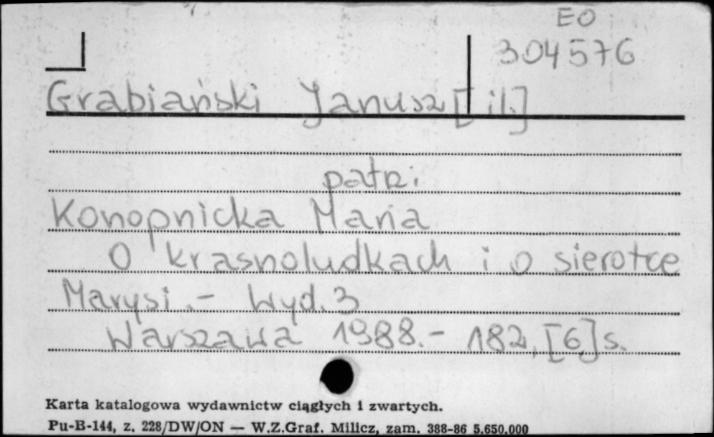 EO
304576
Grabiański Janusz [il.]
patrz:
Konopnicka Maria
O krasnoludkach i o sierotce
Marysi.- Wyd. 3
Warszawa 1988.- 182, [6] s.
Karta katalogowa wydawnictw ciągłych i zwartych.
Pu-B-144, z. 228/DW/ON — W.Z.Graf. Milicz, zam. 388-86 5.650.000